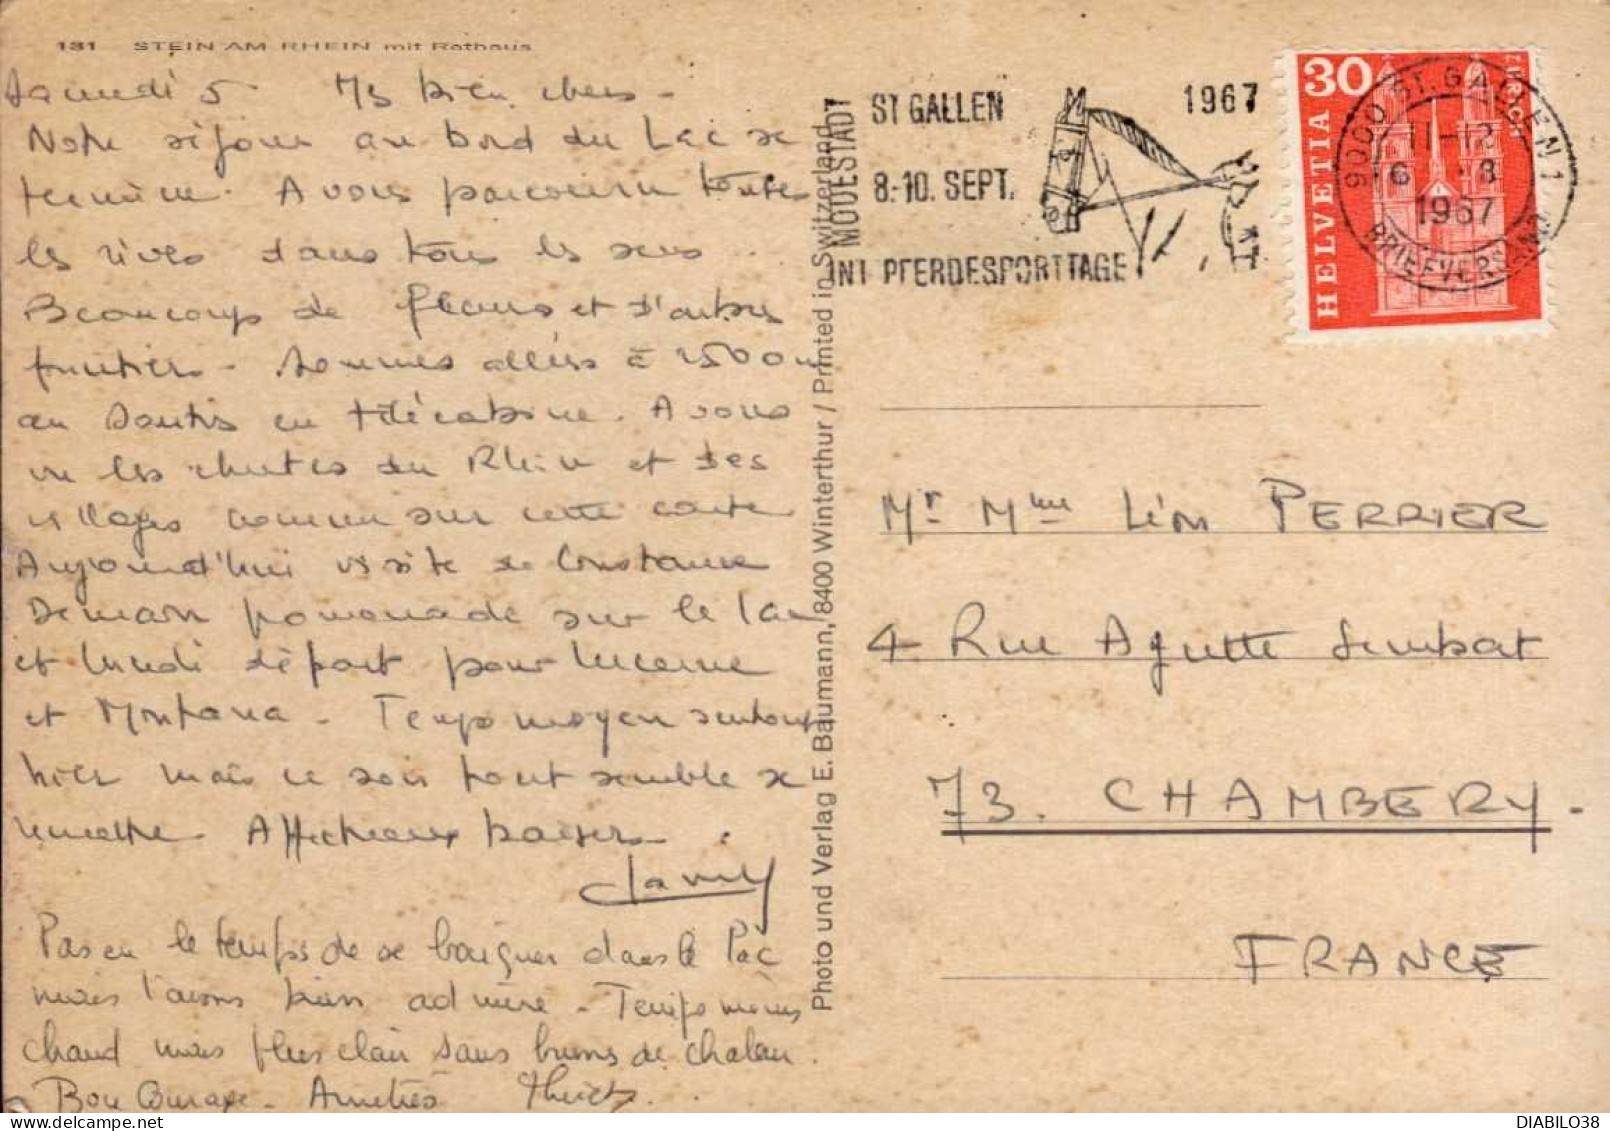 131 STEIN AM RHEIN mit Rathaus
Samedi 5 Mes bien chers -
Notre séjour au bord du Lac se
termine. Avons parcouru toutes
les rives dans tous les sens
Beaucoup de fleurs et d'arbres
fruitiers - Sommes allés à 2500 m
au Santis en télécabine. Avons
vu les chutes du Rhin et des
villages comme sur cette carte
Aujourd'hui visite de Constance
Demain promenade sur le lac
et lundi départ pour Lucerne
et Montana - Temps moyen surtout
hier mais ce soir tout semble se
remettre - Affectueux baisers -
Pas eu le temps de se baigner dans le lac
mais l'avons bien admiré - Temps moins
chaud mais plus clair sans brume de chaleur.
Bon Courage - Amitiés
Photo und Verlag E. Baumann, 8400 Winterthur / Printed in Switzerland
MODESTADT
ST GALLEN
1967
8.-10. SEPT.
INT PFERDESPORTTAGE
30
HELVETIA
ZÜRICH
9000 ST. GALLEN 1
11-12
6.-8
1967
BRIEFVERSAND
Mr Mme Léon PERRIER
4 Rue Ayutte Sembat
73. CHAMBERY.
FRANCE
DIABILO38